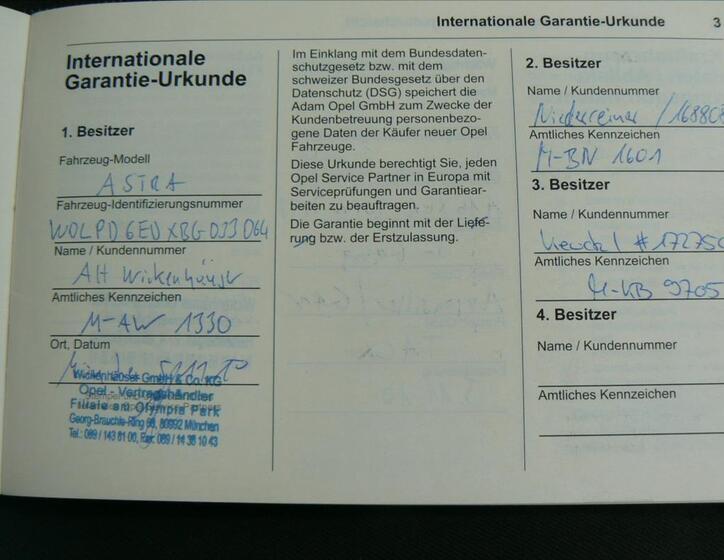 Internationale Garantie-Urkunde 3
Internationale
Garantie-Urkunde
1. Besitzer
Fahrzeug-Modell
ASTRA
Fahrzeug-Identifizierungsnummer
Name / Kundennummer
AH Wickenhäuser
Amtliches Kennzeichen
M-AW 1330
Ort, Datum
Wickenhäuser GmbH & Co. KG
Opel - Vertragshändler
Filiale am Olympia Park
Georg-Brauchle-Ring 66, 80992 München
Im Einklang mit dem Bundesdaten-
schutzgesetz bzw. mit dem
schweizer Bundesgesetz über den
Datenschutz (DSG) speichert die
Adam Opel GmbH zum Zwecke der
Kundenbetreuung personenbezo-
gene Daten der Käufer neuer Opel
Fahrzeuge.
Diese Urkunde berechtigt Sie, jeden
Opel Service Partner in Europa mit
Serviceprüfungen und Garantiear-
beiten zu beauftragen.
Die Garantie beginnt mit der Liefe-
rung bzw. der Erstzulassung.
2. Besitzer
Name / Kundennummer
Amtliches Kennzeichen
M-BN 1601
3. Besitzer
Name / Kundennummer
Amtliches Kennzeichen
M-KB 9705
4. Besitzer
Name / Kundennummer
Amtliches Kennzeichen